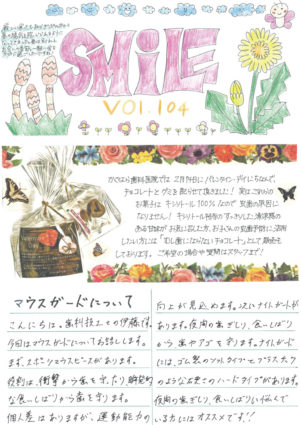 SMILE
VOl.104
かぐはら歯科医院では 2月14日にバレンタインデイにちなんで、
チョコレートとグミを配らせて頂きました! 実はこれらの
お菓子は キシリトール100%なので 虫歯の原因に
なりません! キシリトール独特の すっきりした清涼感の
ある甘味が お気に召した方、お子さんの虫歯予防に活用
したい方には「むし歯にならないチョコレート」として販売も
しております。ご希望の場合や質問はスタッフまで!
マウスガードについて
こんにちは、歯科技工士の伊藤です。
今回はマウスガードについてお話しします。
まず、スポーツマウスピースがあります。
役割は、衝撃から歯を守ったり瞬発的
な食いしばりから歯を守ります。
個人差はありますが、運動能力の
向上が見込めます。次にナイトガードが
あります。夜間の歯ぎしり、食いしばり
から歯やアゴを守ります。ナイトガード
には、ゴム製のソフトタイプとプラスチック
のような固さのハードタイプがあります。
夜間の歯ぎしり、食いしばりに悩んで
いる方にはオススメです!!